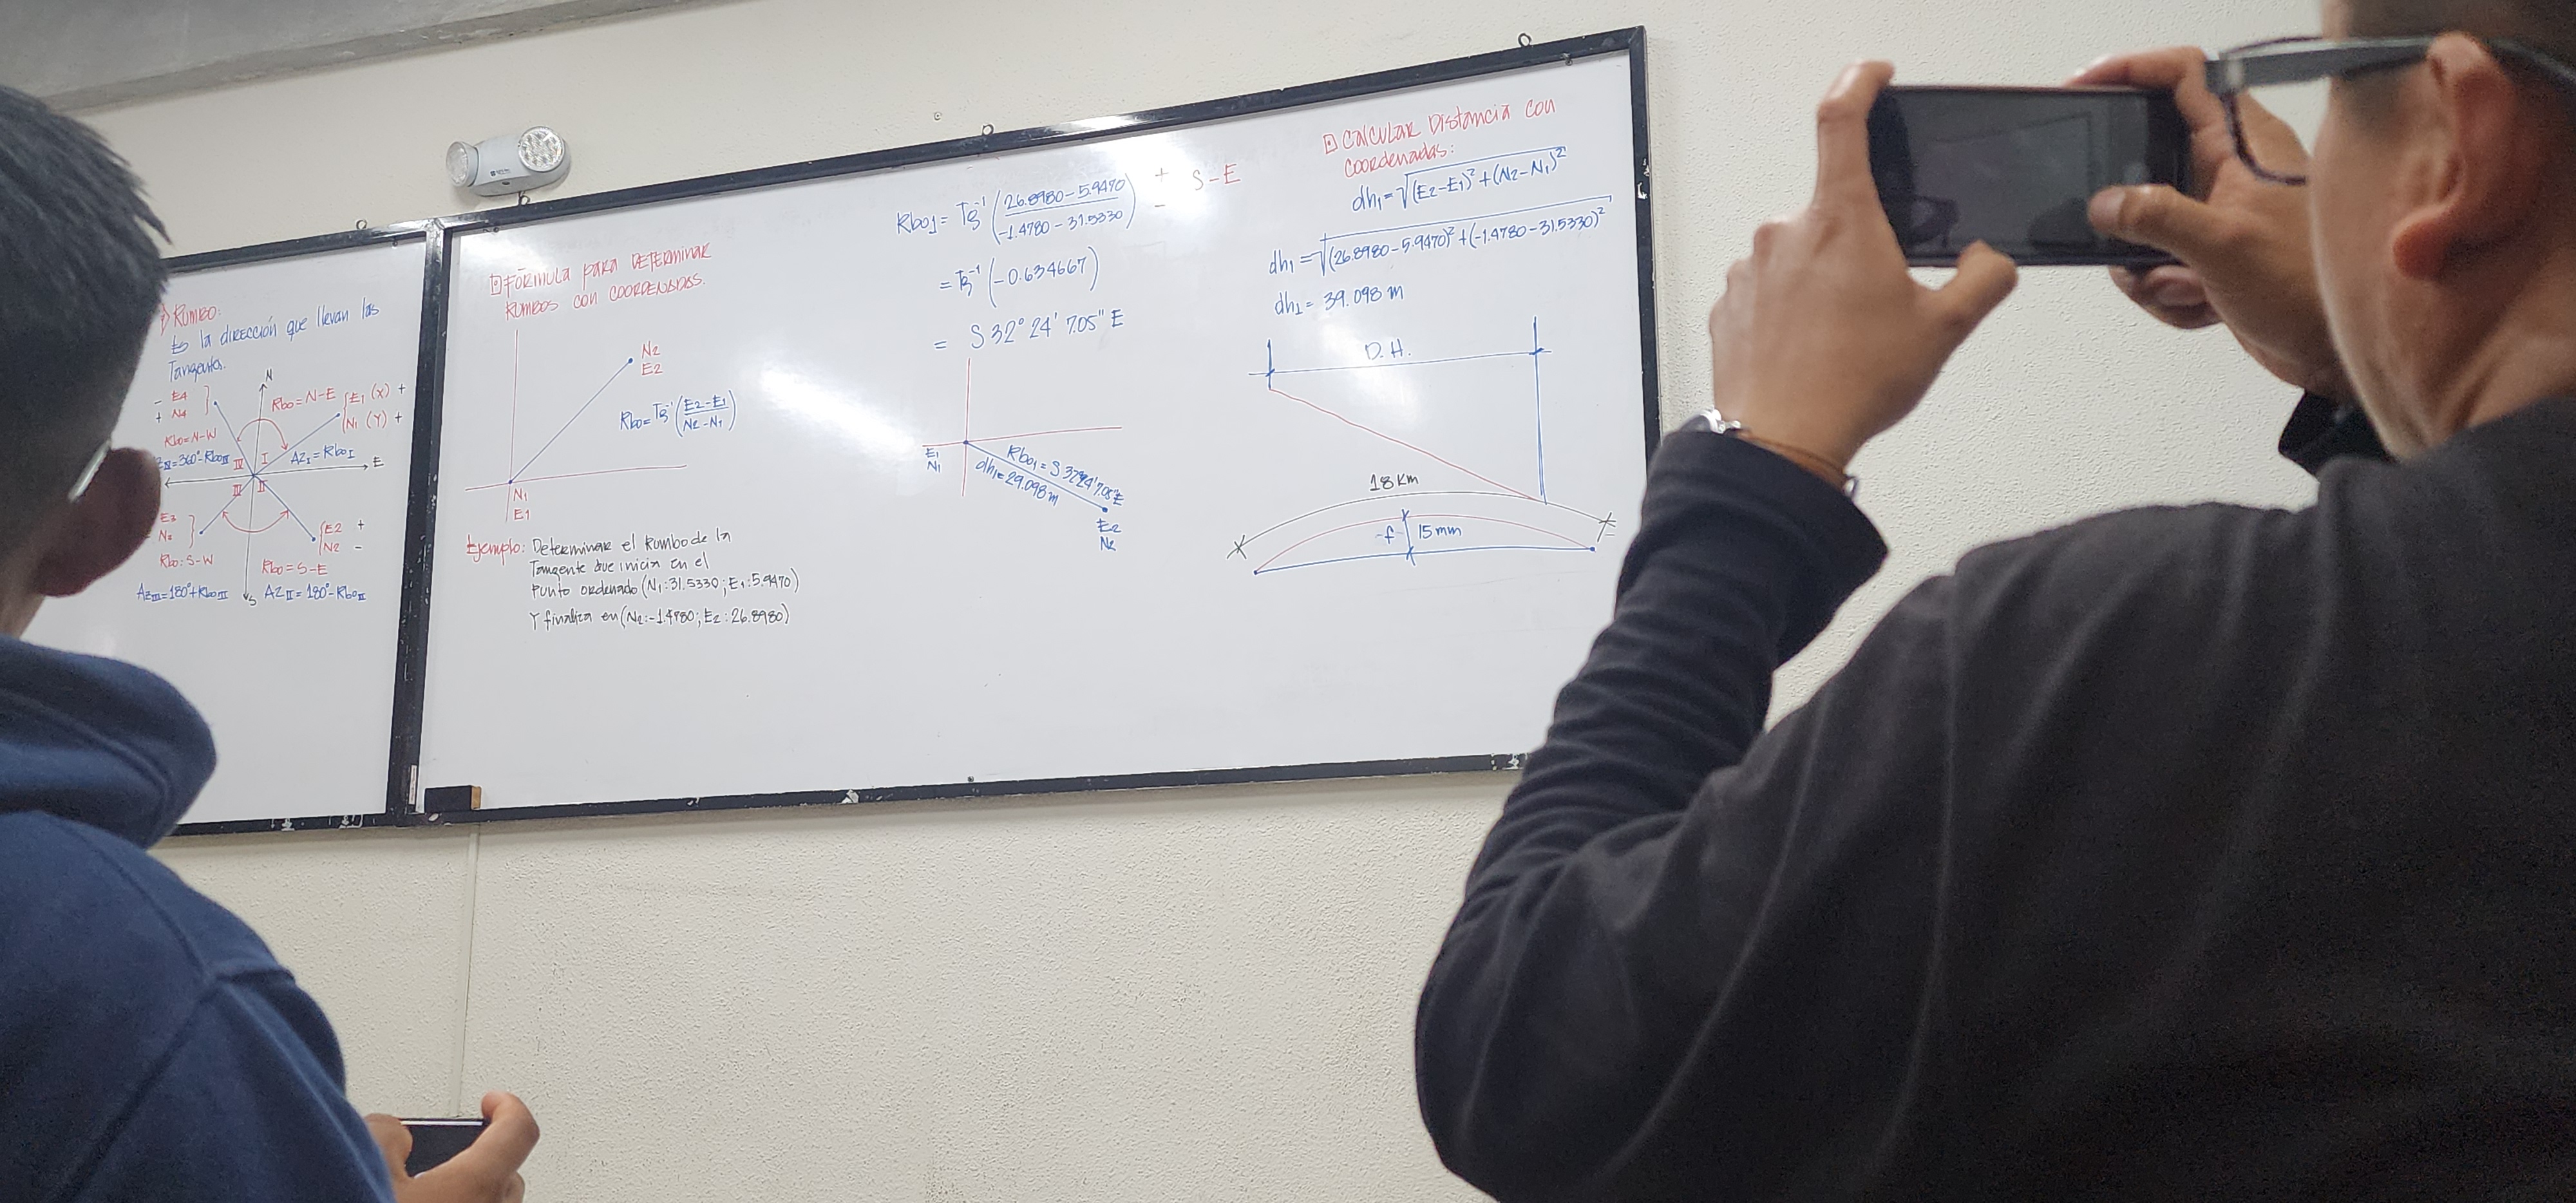 Rumbo:
Es la dirección que llevan las
Tangentes.
N
- E4
+ N4
Rbo=N-W
Rbo=N-E
E1 (X) +
N1 (Y) +
=360°-Rbo
IV
I
AZ I = Rbo I
E
III
II
E3
Rbo=S-W
AZ III=180°+Rbo
S
E2 +
N2 -
Rbo=S-E
AZ II=180°-Rbo II
FÓRMULA PARA DETERMINAR
RUMBOS CON COORDENADAS.
N2
E2
Rbo=Tg⁻¹(E2-E1/N2-N1)
N1
E1
Ejemplo: Determinar el Rumbo de la
Tangente que inicia en el
Punto ordenado (N1:31.5330; E1:5.9470)
Y finaliza en (N2:-1.4780; E2:26.8980)
Rbo1= Tg⁻¹(26.8980-5.9470/-1.4780-31.5330) + - S-E
= Tg⁻¹(-0.634667)
= S 32° 24' 7.05" E
E1
N1
Rbo1= S 32°24'7.05"E
dh1=29.098 m
E2
N2
CALCULAR DISTANCIA CON
COORDENADAS:
dh1=√(E2-E1)²+(N2-N1)²
dh1=√(26.8980-5.9470)²+(-1.4780-31.5330)²
dh1= 39.098 m
D.H.
18 Km
f
15 mm